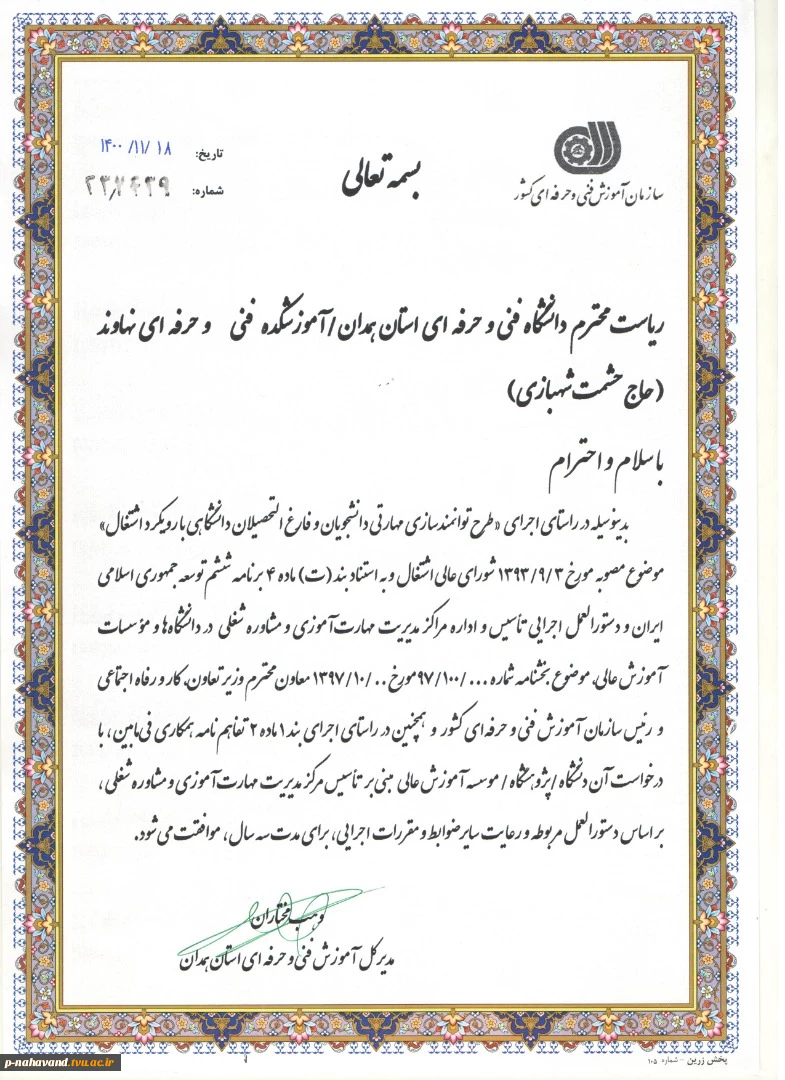 سازمان آموزش فنی و حرفه ای کشور
بسمه تعالی
تاریخ: ۱۴۰۰/۱۱/۱۸
شماره:
ریاست محترم دانشگاه فنی و حرفه ای استان همدان/آموزشکده فنی و حرفه ای نهاوند
(حاج حشمت شهبازی)
با سلام و احترام
بدینوسیله در راستای اجرای «طرح توانمندسازی مهارتی دانشجویان و فارغ التحصیلان دانشگاهی با رویکرد اشتغال»
موضوع مصوبه مورخ ۱۳۹۳/۹/۳ شورای عالی اشتغال و به استناد بند (ت) ماده ۴ برنامه ششم توسعه جمهوری اسلامی
ایران و دستورالعمل اجرایی تأسیس و اداره مراکز مدیریت مهارت آموزی و مشاوره شغلی در دانشگاه‌ها و مؤسسات
آموزش عالی، موضوع بخشنامه شماره ۹۷/۱۰۰/... مورخ ۱۳۹۷/۱۰/.. معاون محترم وزیر تعاون، کار و رفاه اجتماعی
و رئیس سازمان آموزش فنی و حرفه‌ای کشور و همچنین در راستای اجرای بند ۱ ماده ۲ تفاهم نامه همکاری فی‌مابین، با
درخواست آن دانشگاه/پژوهشگاه/موسسه آموزش عالی مبنی بر تأسیس مرکز مدیریت مهارت آموزی و مشاوره شغلی،
بر اساس دستورالعمل مربوطه و رعایت سایر ضوابط و مقررات اجرایی، برای مدت سه سال، موافقت می‌شود.
وهب مختاران
مدیر کل آموزش فنی و حرفه ای استان همدان
پخش زرین - شماره ۱۰۵
p-nahavand.tvu.ac.ir